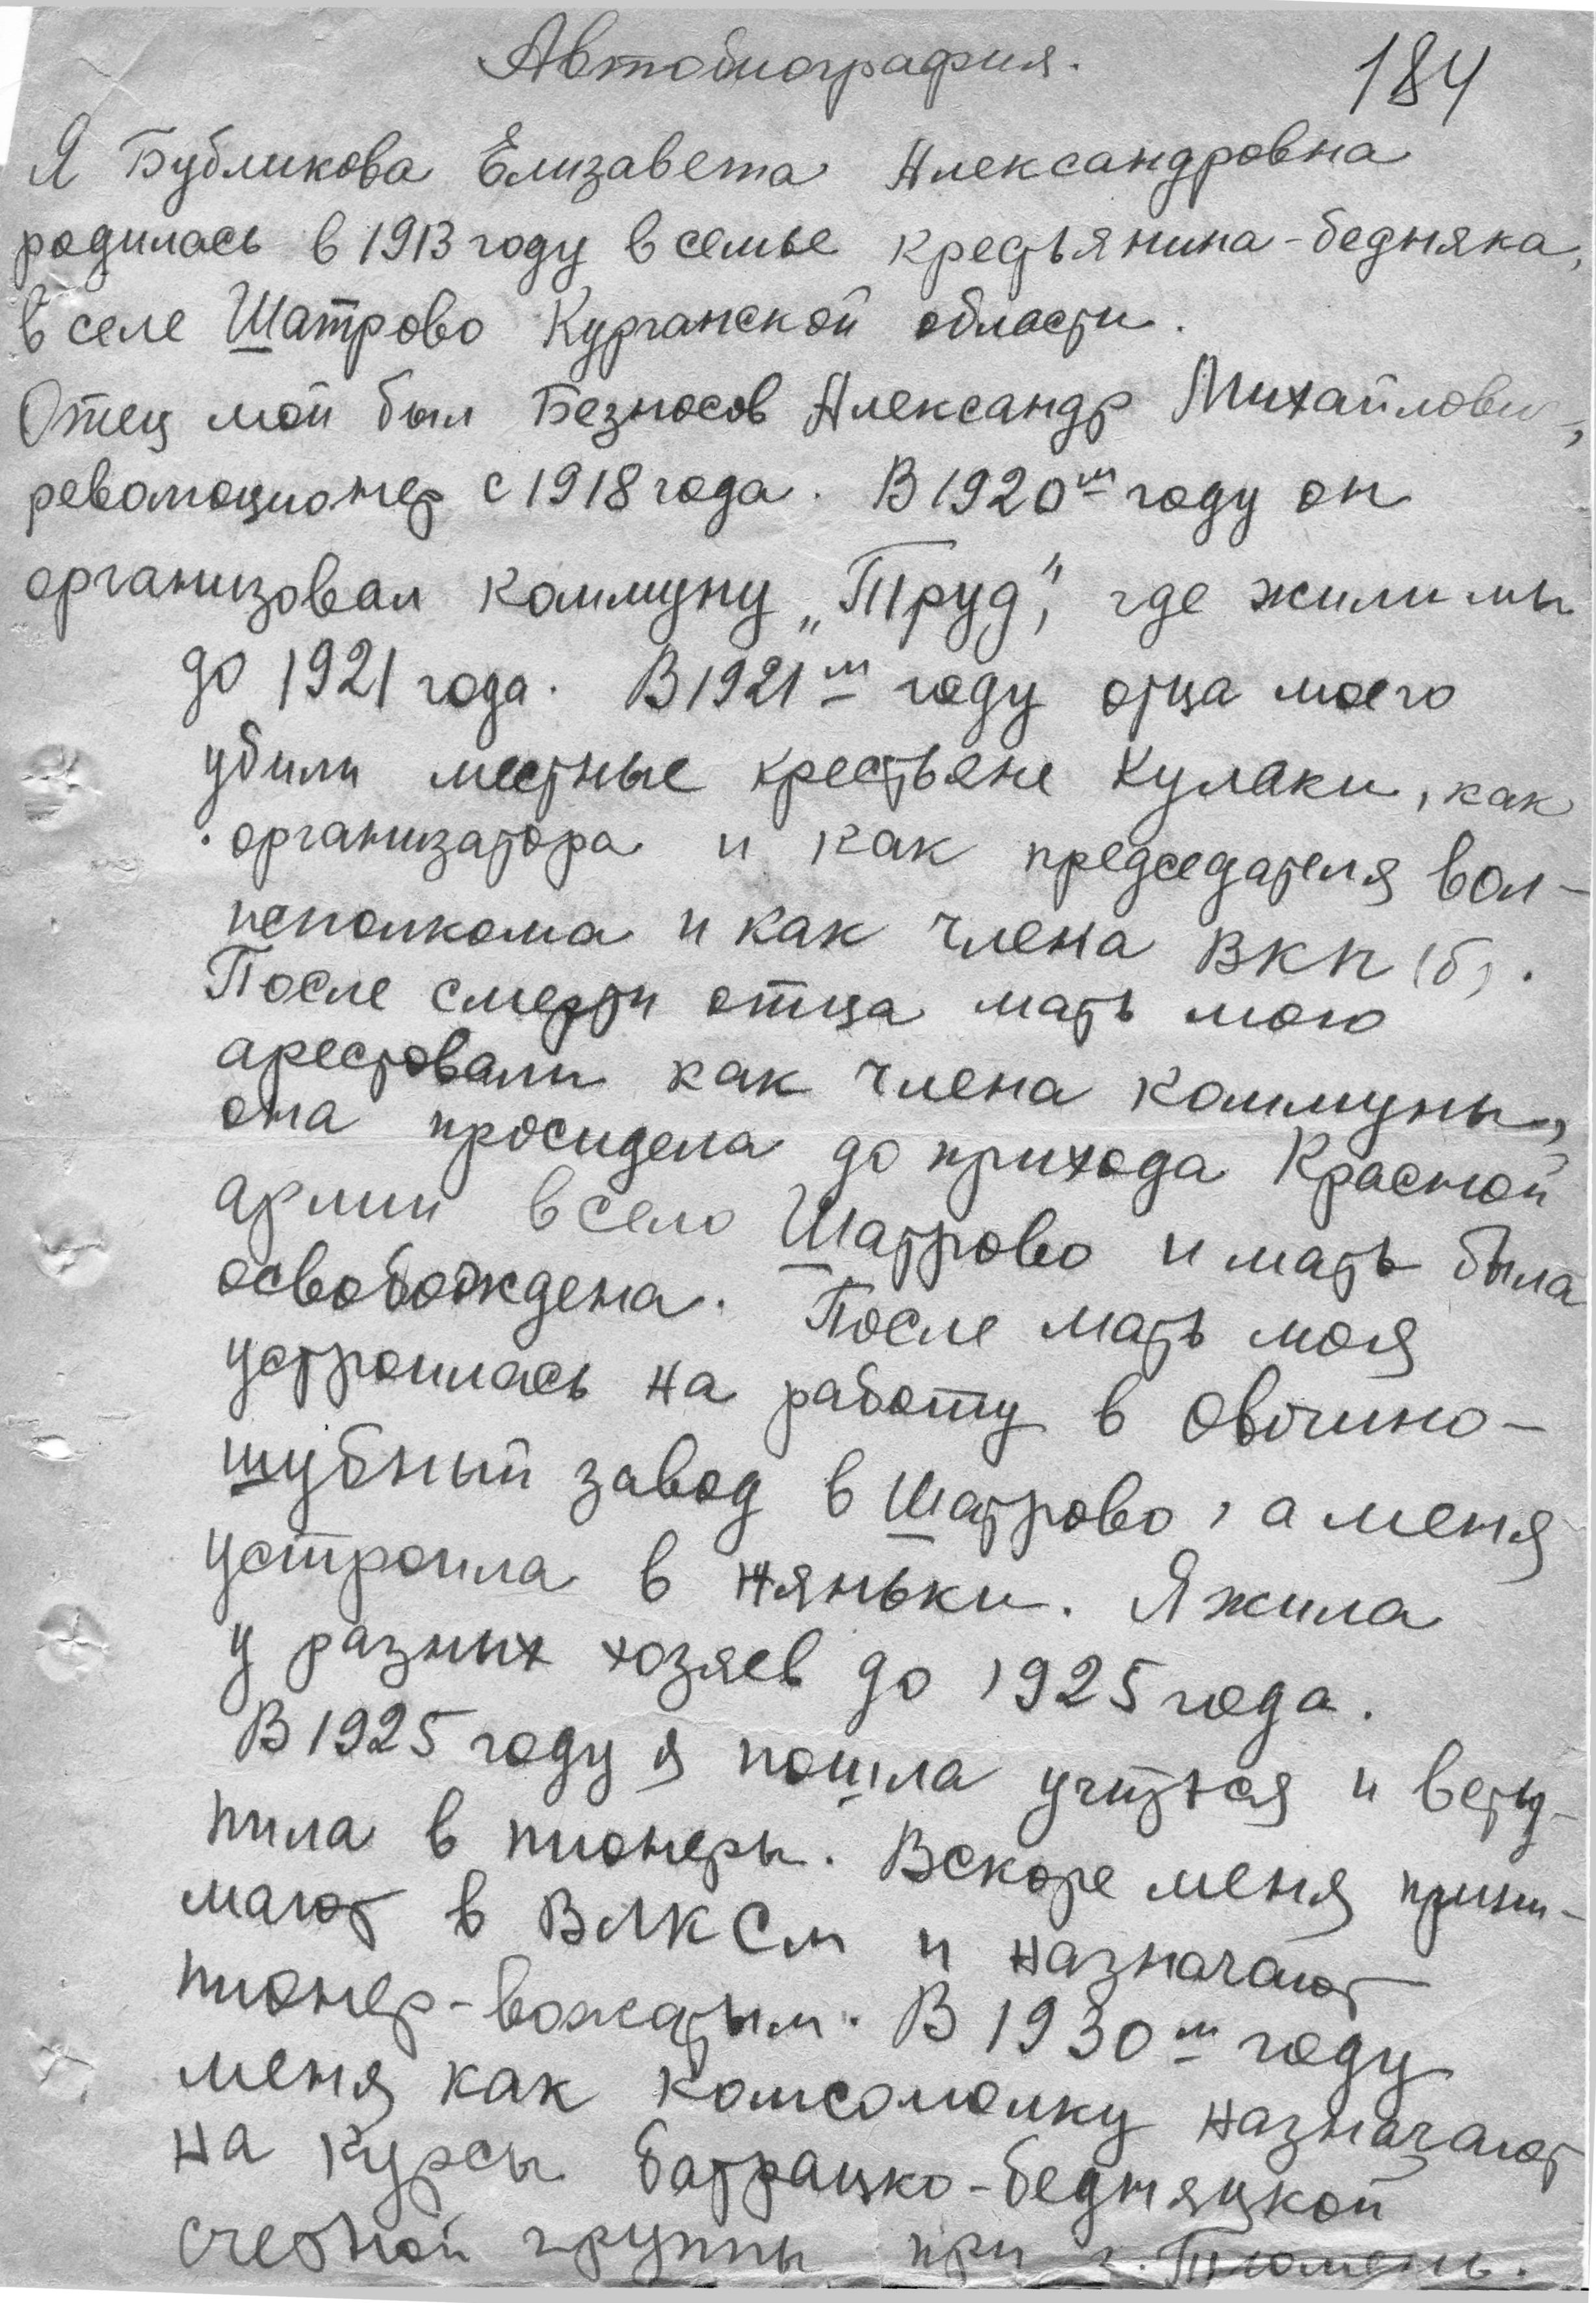 Автобиография.
184
Я Бубликова Елизавета Александровна
родилась в 1913 году в семье крестьянина-бедняка,
в селе Шатрово Курганской области.
Отец мой был Безносов Александр Михайлович,
революционер с 1918 года. В 1920м году он
организовал коммуну „Труд", где жили мы
до 1921 года. В 1921м году отца моего
убили местные крестьяне кулаки, как
организатора и как председателя вол-
исполкома и как члена ВКП(б).
После смерти отца мать мою
арестовали как члена коммуны,
она просидела до прихода Красной
армии в село Шатрово и мать была
освобождена. После мать моя
устроилась на работу в Овчино-
шубный завод в Шатрово, а меня
устроила в няньки. Я жила
у разных хозяев до 1925 года.
В 1925 году я пошла учиться и всту-
пила в пионеры. Вскоре меня прини-
мают в ВЛКСМ и назначают
пионер-вожатым. В 1930м году
меня как комсомолку назначают
на курсы батрацко-бедняцкой
счетной группы при г. Тюмень.